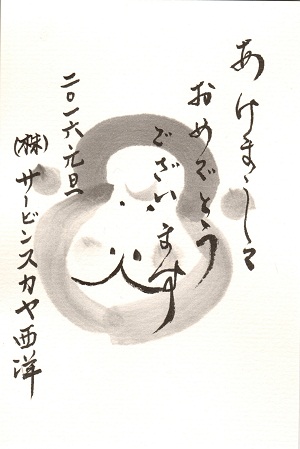 あけまして
おめでとう
ございます
二〇一六.元旦
(株)サービンスカヤ西洋